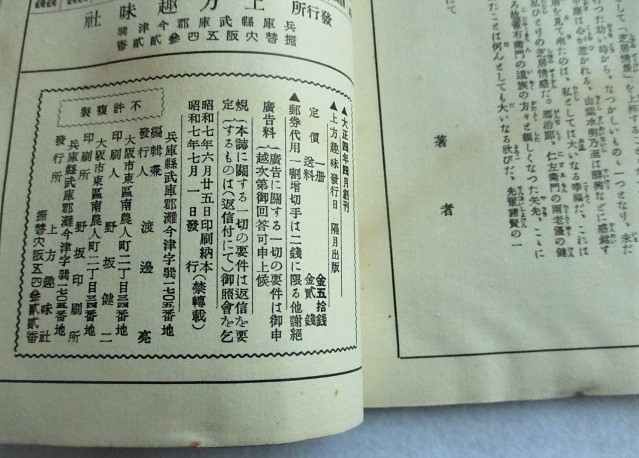 して『芝居情景』を上梓するこ
行つた幼い時から、なつかしいもの一つとなり、永
中座に心を惹かれる。
居を見て來たのは、私としては大いなる幸福だ。これは
私ひとりの芝居情感だ。鴈治郎、仁左衛門の兩老優の健
右衛門の遺族の方々と親しくなつた矢先、こゝに
たことは何んとしても大いなる歓びだ。先輩諸賢の一
にて
著者
發行所 上方趣味社
兵庫縣武庫郡今津
振替大阪五四參貳貳番
▲大正四年四月創刊
▲上方趣味發行日 隔月出版
定價一册 金五拾錢
送料 金貳錢
▲郵券代用一割增切手は二錢に限る他謝絕
廣告料 (廣告に關する一切の要件は御申越次第御回答可申上候
規定 (本誌に關する一切の要件は返信を要するものは(返信付にて)御照會を乞
昭和七年六月廿五日印刷納本
昭和七年七月一日發行 (禁轉載)
不許複製
兵庫縣武庫郡灘今津字巽一七〇五番地
編輯兼發行人 渡邊亮
大阪市東區南農人町二丁目三四番地
印刷人 野坂健二
大阪市東區南農人町二丁目三四番地
印刷所 野坂印刷所
兵庫縣武庫郡灘今津字巽一七〇五番地
發行所 上方趣味社
振替大阪五四參貳貳番